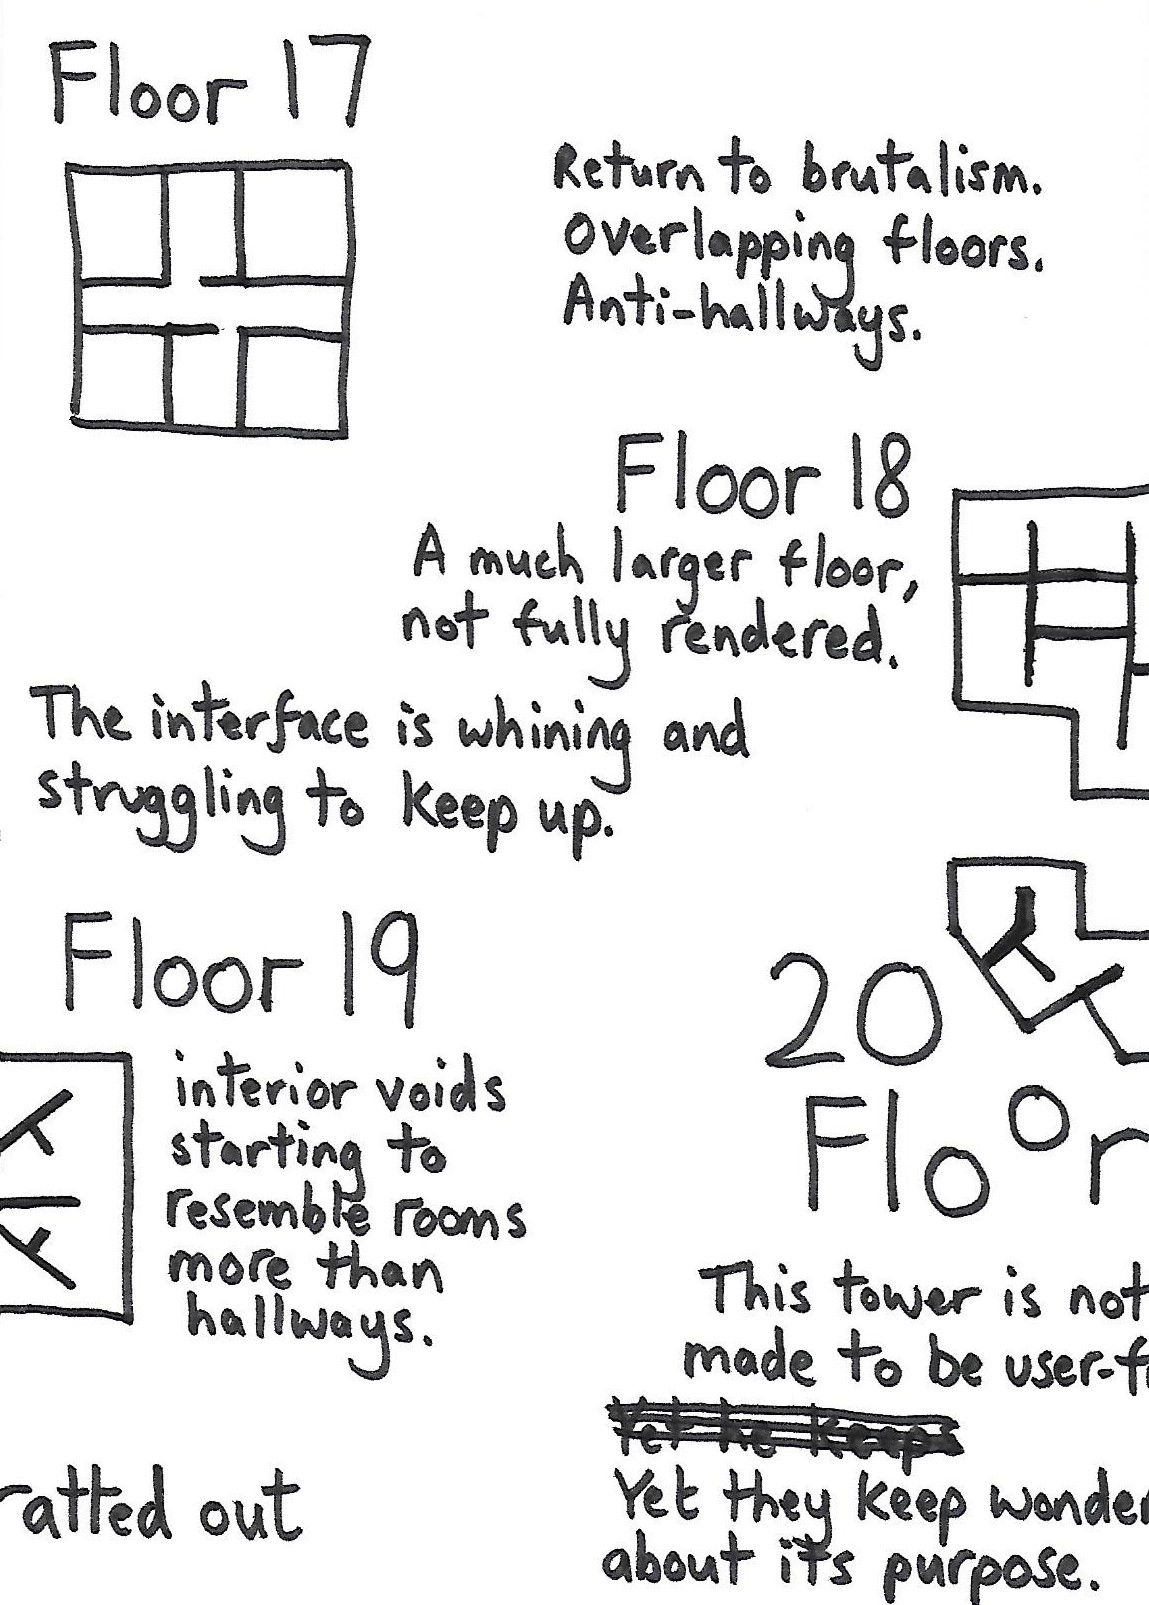 Floor 17
Return to brutalism.
Overlapping floors.
Anti-hallways.
Floor 18
A much larger floor,
not fully rendered.
The interface is whining and
struggling to keep up.
Floor 19
interior voids
starting to
resemble rooms
more than
hallways.
20
Floor
This tower is not
made to be user-f
Yet he keeps
Yet they keep wonder
about its purpose.
ratted out